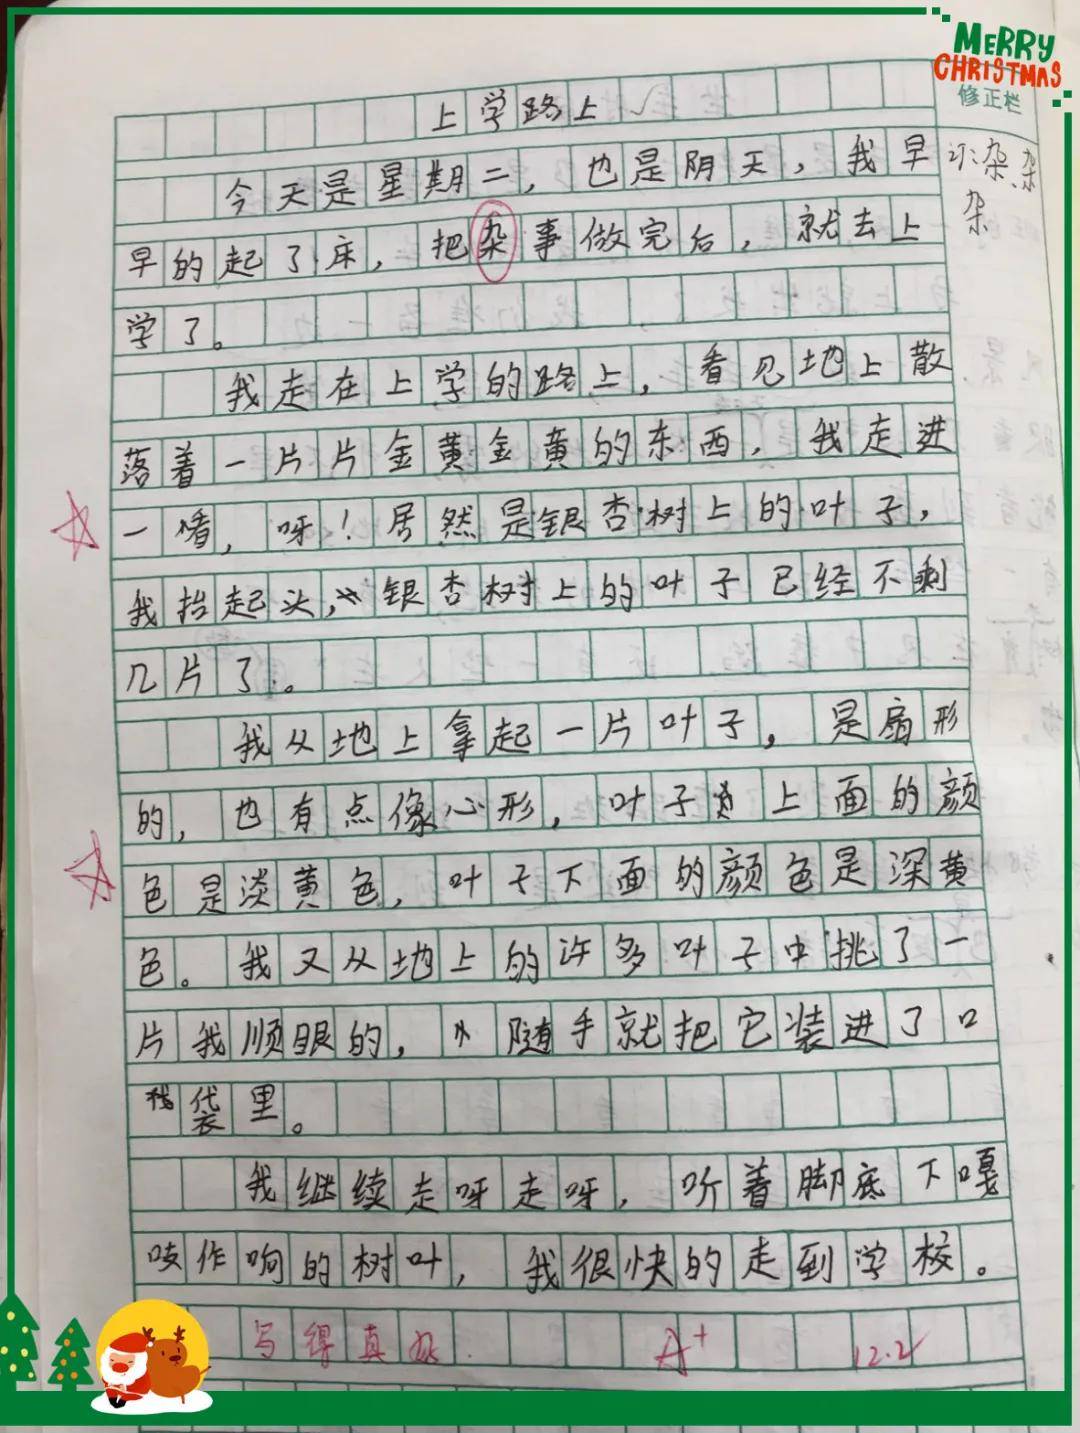 MERRY
CHRISTMAS
修正栏
上学路上
今天是星期二，也是阴天，我早
订:杂、杂
杂
早的起了床，把杂事做完后，就去上
学了。
我走在上学的路上，看见地上散
落着一片片金黄金黄的东西，我走进
一看，呀！居然是银杏树上的叶子，
我抬起头，银杏树上的叶子已经不剩
几片了。
我从地上拿起一片叶子，是扇形
的，也有点像心形，叶子上面的颜
色是淡黄色，叶子下面的颜色是深黄
色。我又从地上的许多叶子中挑了一
片我顺眼的，随手就把它装进了口
袋里。
我继续走呀走呀，听着脚底下嘎
吱作响的树叶，我很快的走到学校。
写得真好
A+
12.2